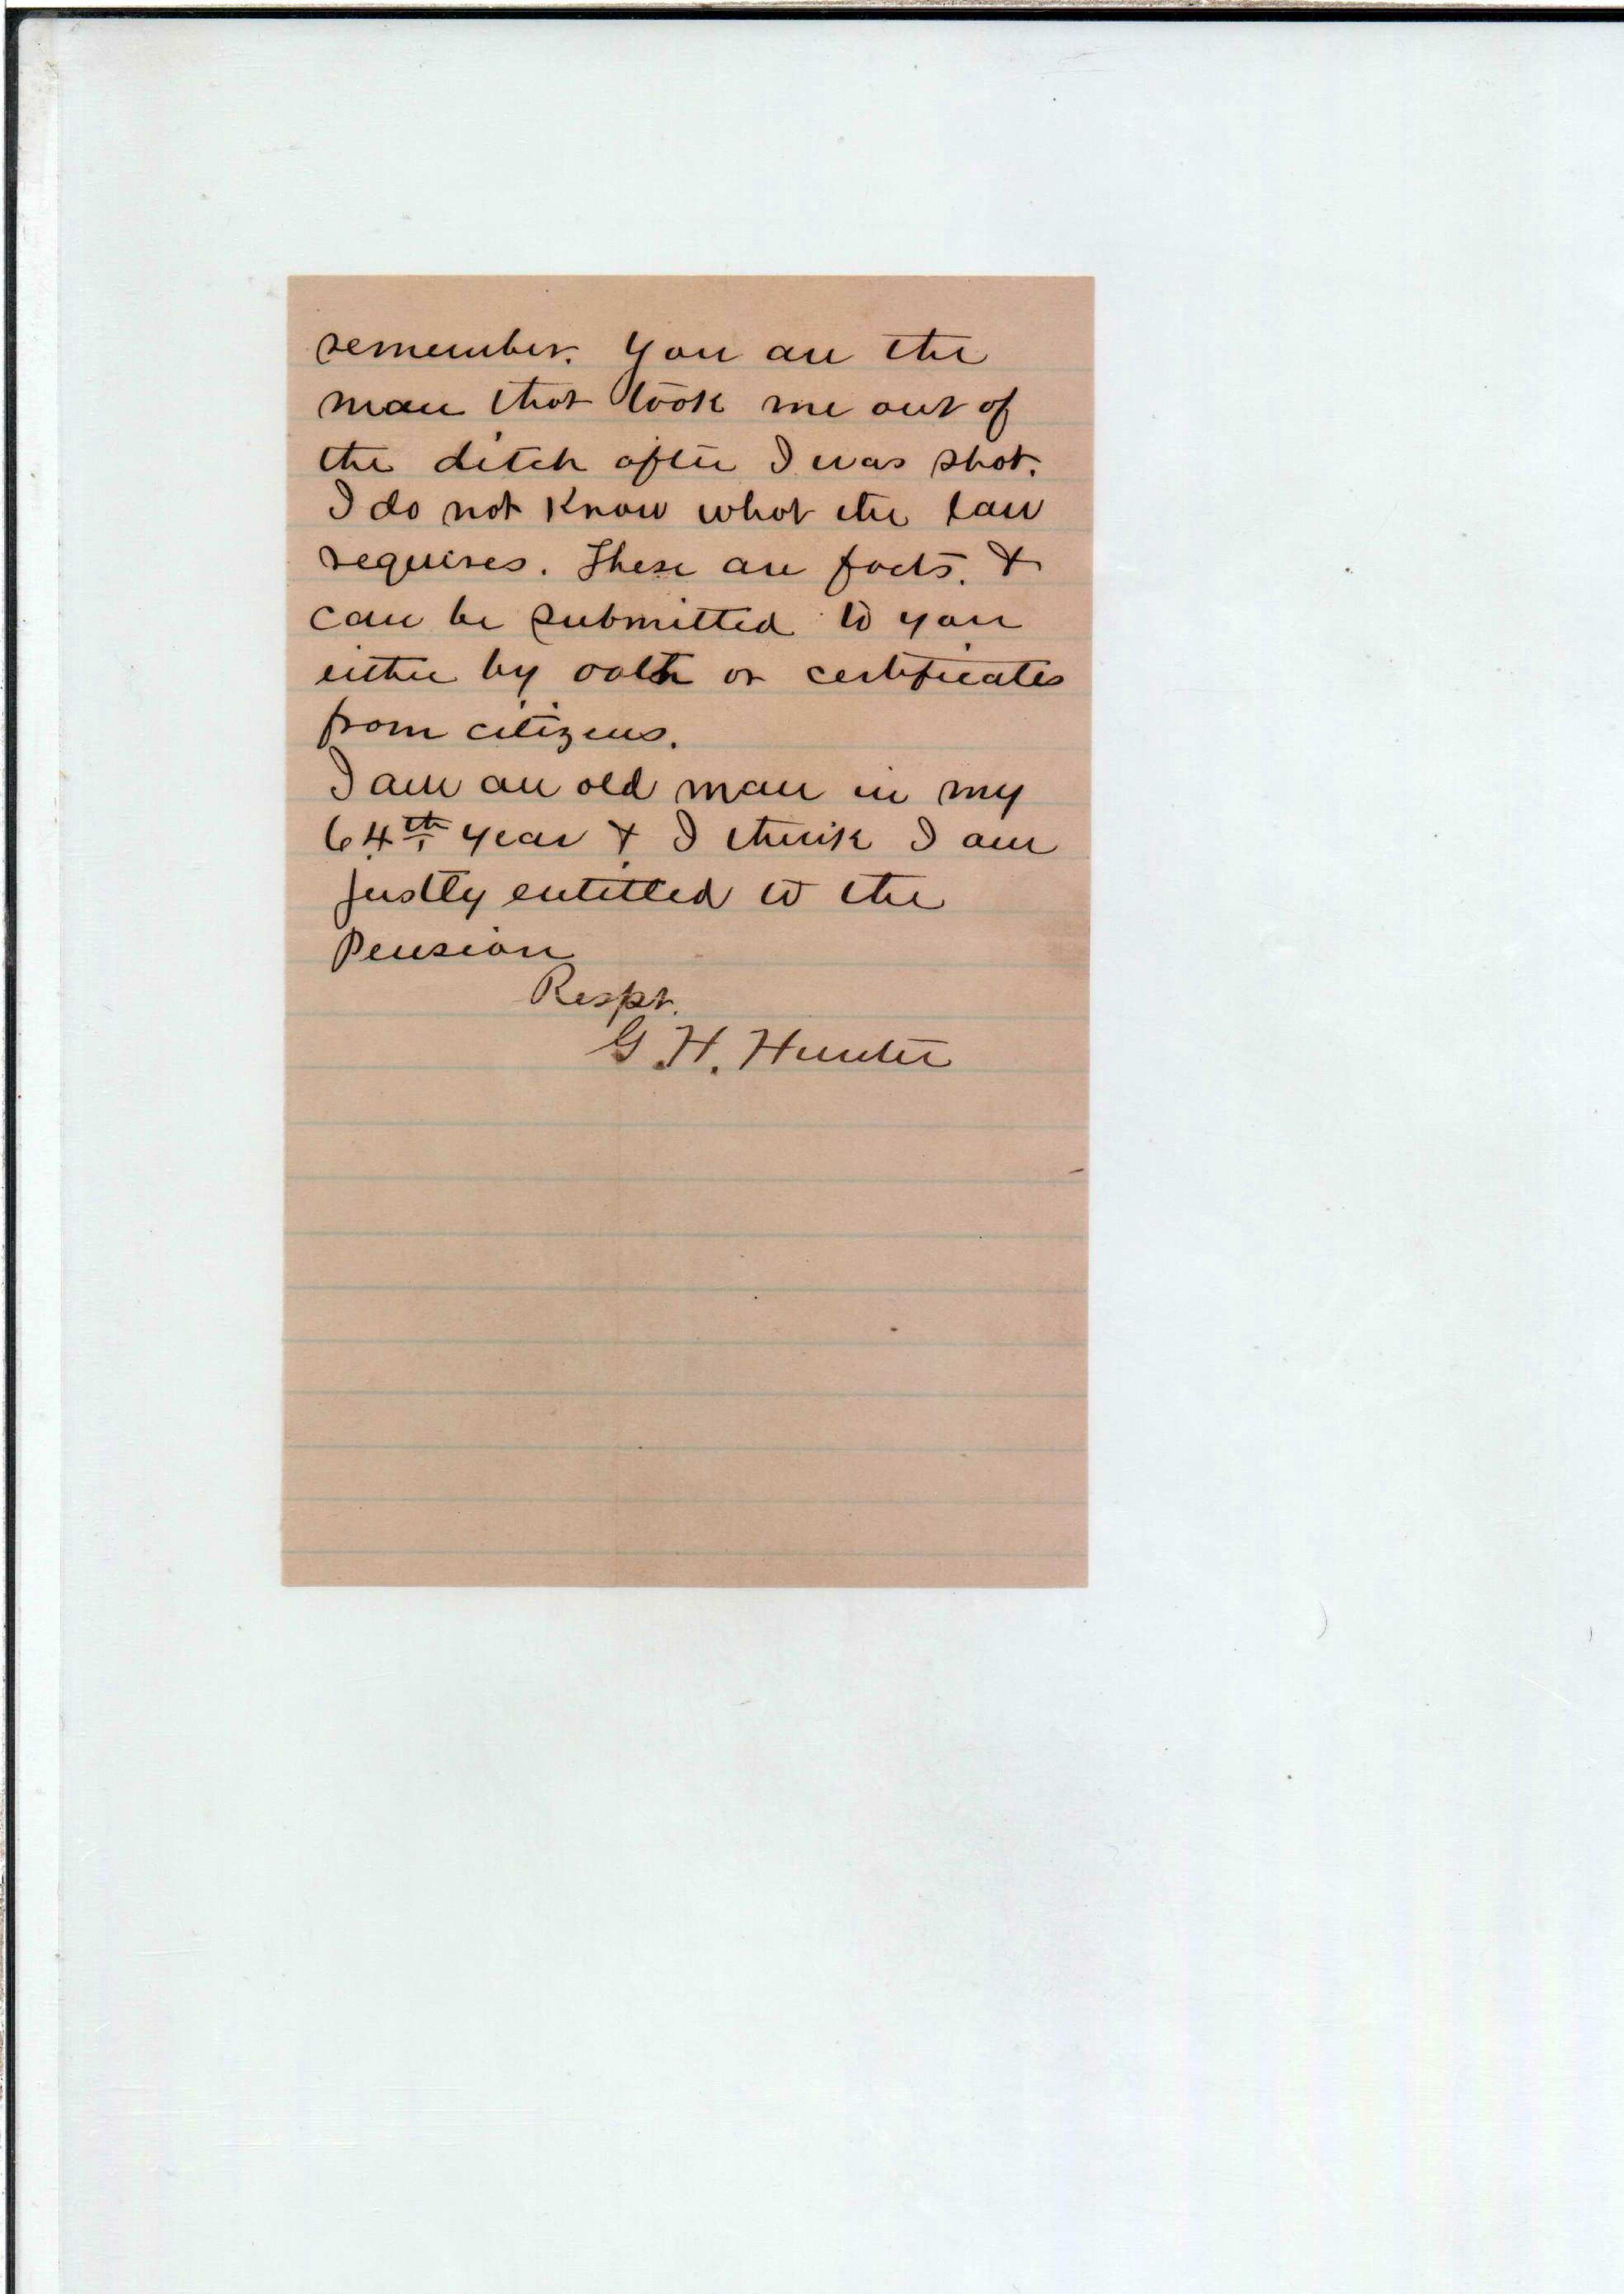 remember. You are the
man that took me out of
the ditch after I was shot.
I do not Know what the law
requires. These are facts. &
can be submitted to you
either by oath or certificates
from citizens.
I am an old man in my
64th year & I think I am
justly entitled to the
Pension
Respt.
G. H. Hunter